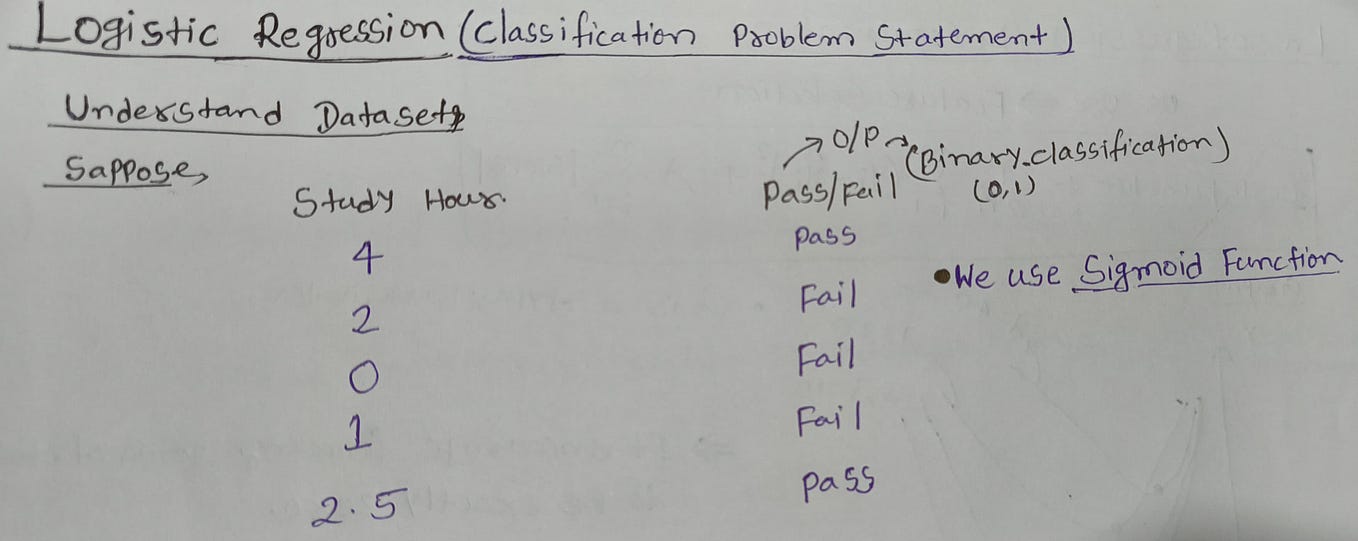 Logistic Regression (Classification Problem Statement)
Understand Dataset
Sappose,
→ O/P → (Binary classification)
Study Hour. Pass/Fail (0,1)
4 Pass
• We use Sigmoid Function
2 Fail
0 Fail
1 Fail
2.5 Pass